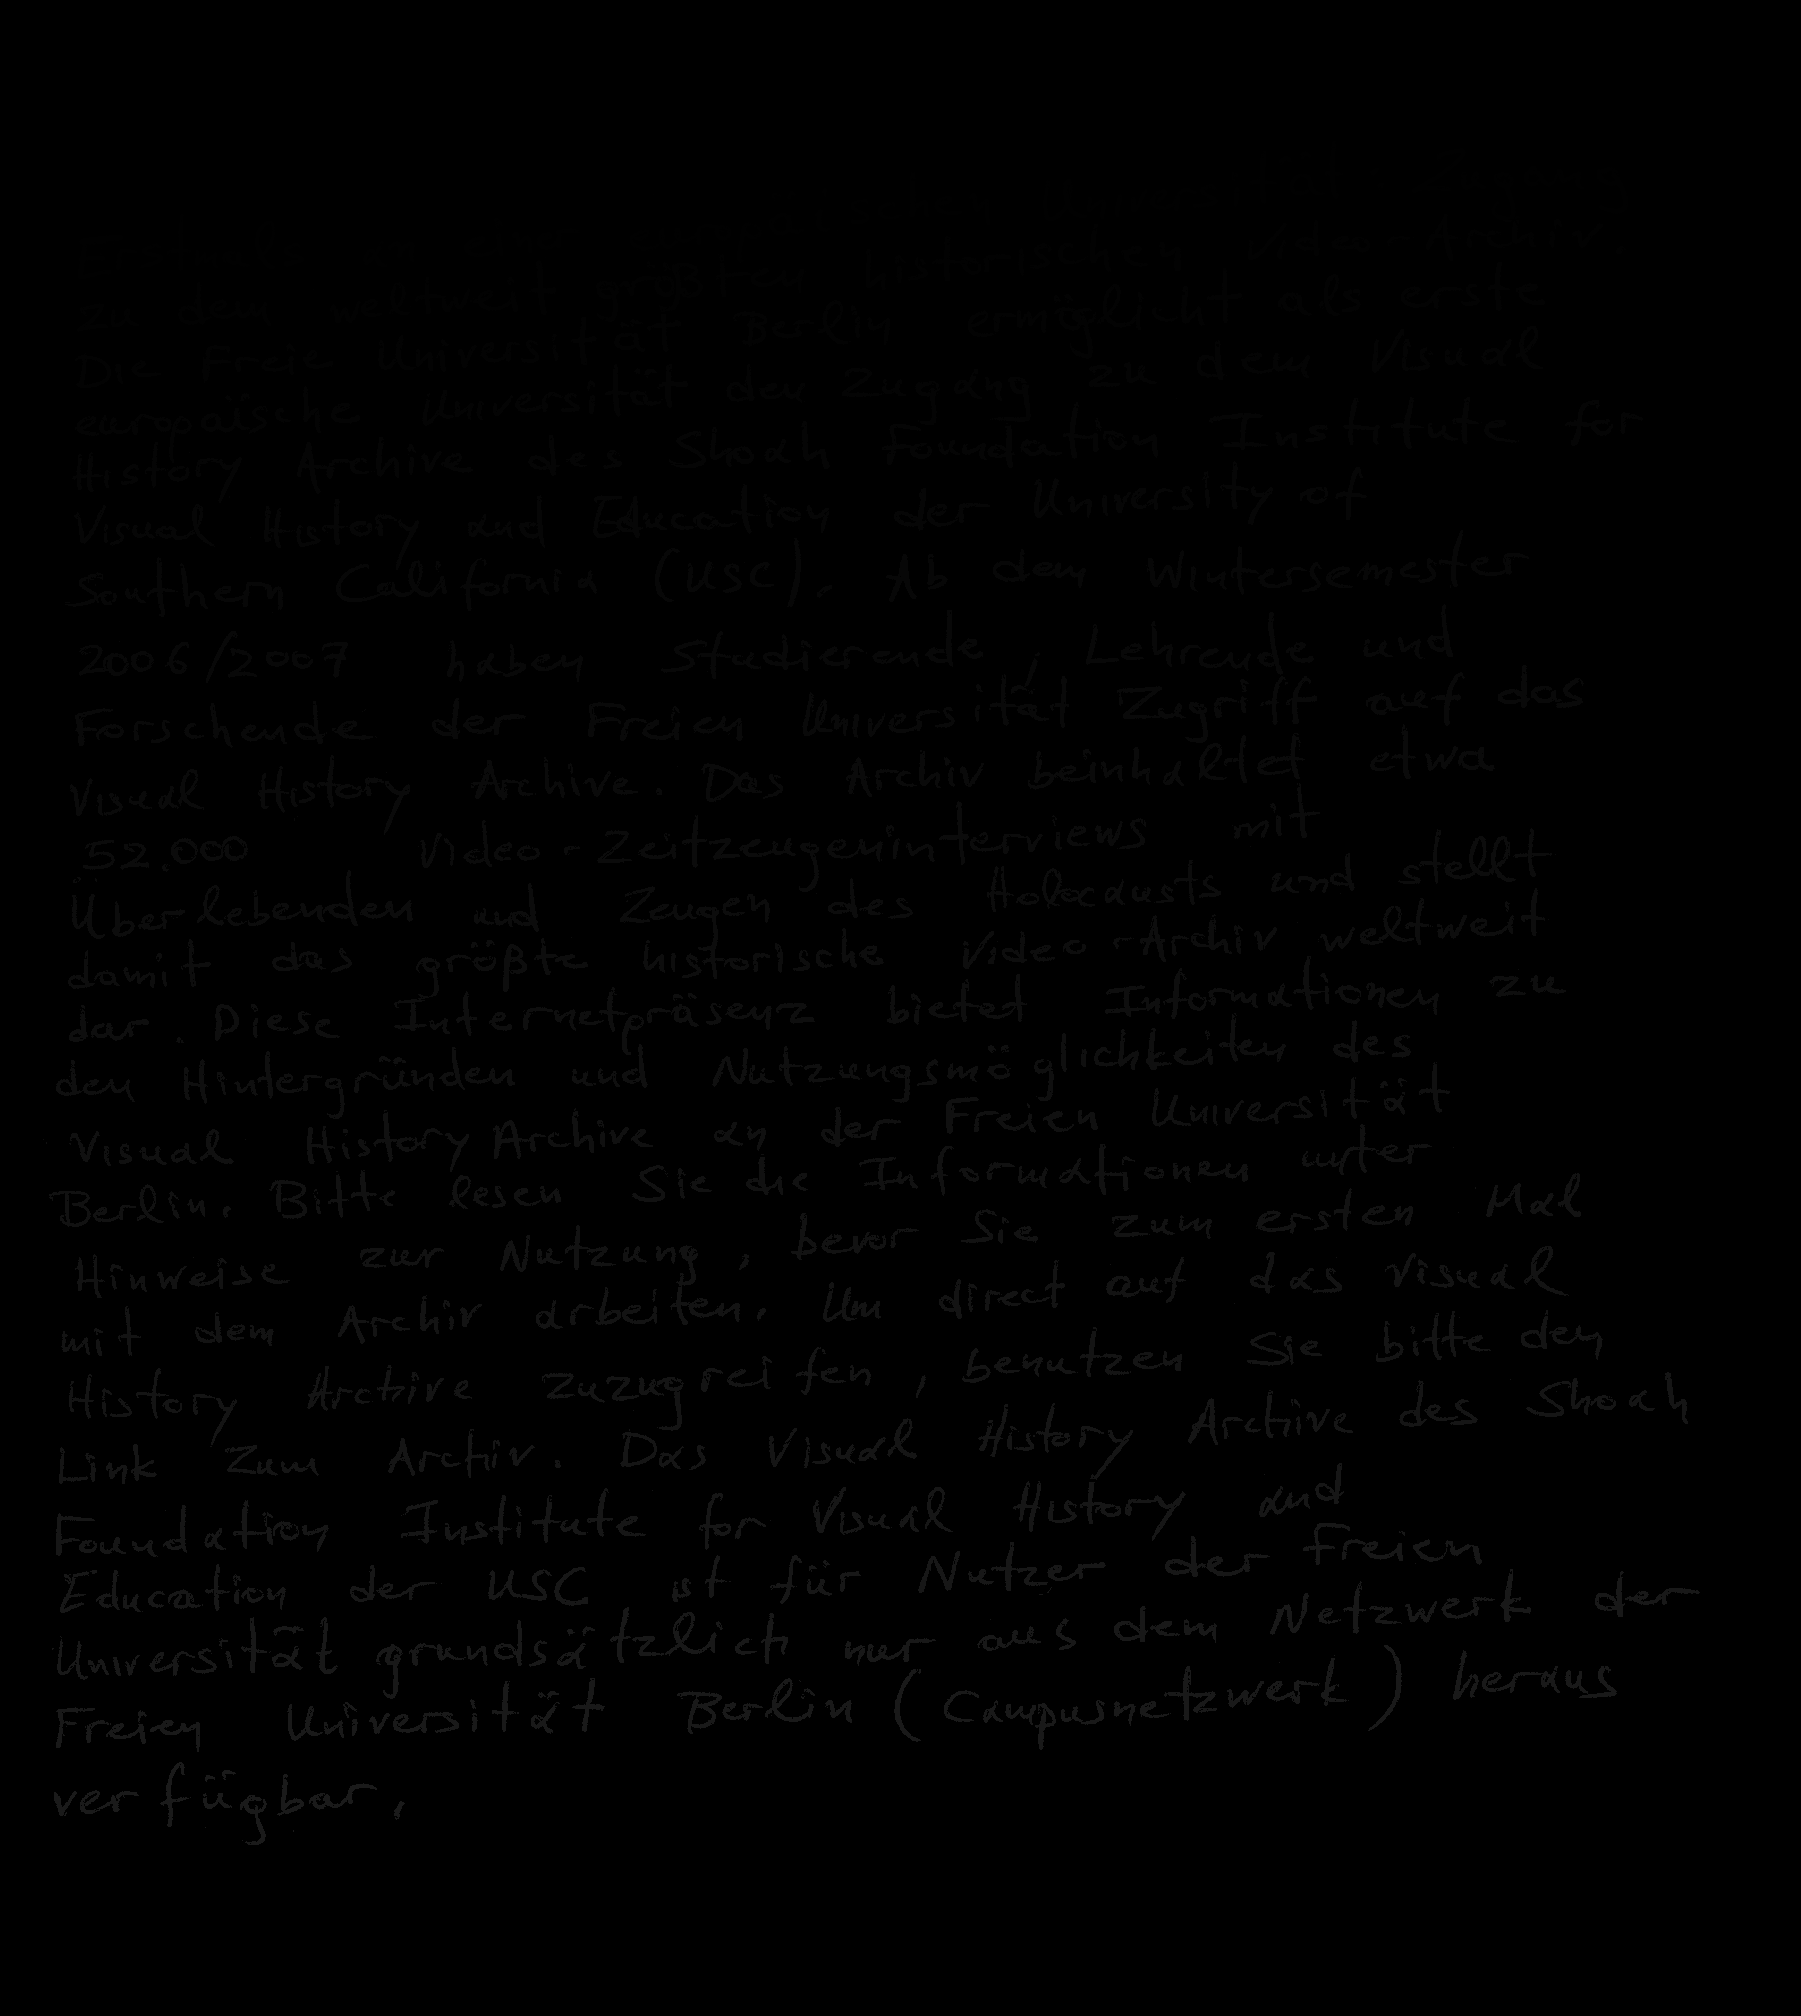 zu dem weltweit größten historischen Video-Archiv.
Die Freie Universität Berlin ermöglicht als erste
europäische Universität den Zugang zu dem Visual
History Archive des Shoah Foundation Institute for
Visual History and Education der University of
Southern California (USC). Ab dem Wintersemester
2006/2007 haben Studierende, Lehrende und
Forschende der Freien Universität Zugriff auf das
Visual History Archive. Das Archiv beinhaltet etwa
52.000 Video-Zeitzeugeninterviews mit
Überlebenden und Zeugen des Holocausts und stellt
damit das größte historische Video-Archiv weltweit
dar. Diese Internetpräsenz bietet Informationen zu
den Hintergründen und Nutzungsmöglichkeiten des
Visual History Archive an der Freien Universität
Berlin. Bitte lesen Sie die Informationen unter
Hinweise zur Nutzung, bevor Sie zum ersten Mal
mit dem Archiv arbeiten. Um direct auf das Visual
History Archive zuzugreifen, benutzen Sie bitte den
Link zum Archiv. Das Visual History Archive des Shoah
Foundation Institute for Visual History and
Education der USC ist für Nutzer der Freien
Universität grundsätzlich nur aus dem Netzwerk der
Freien Universität Berlin (Campusnetzwerk) heraus
verfügbar.